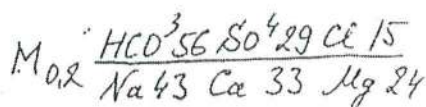 HCO³56 SO⁴29 Cl 15
M0,2
Na 43 Ca 33 Mg 24